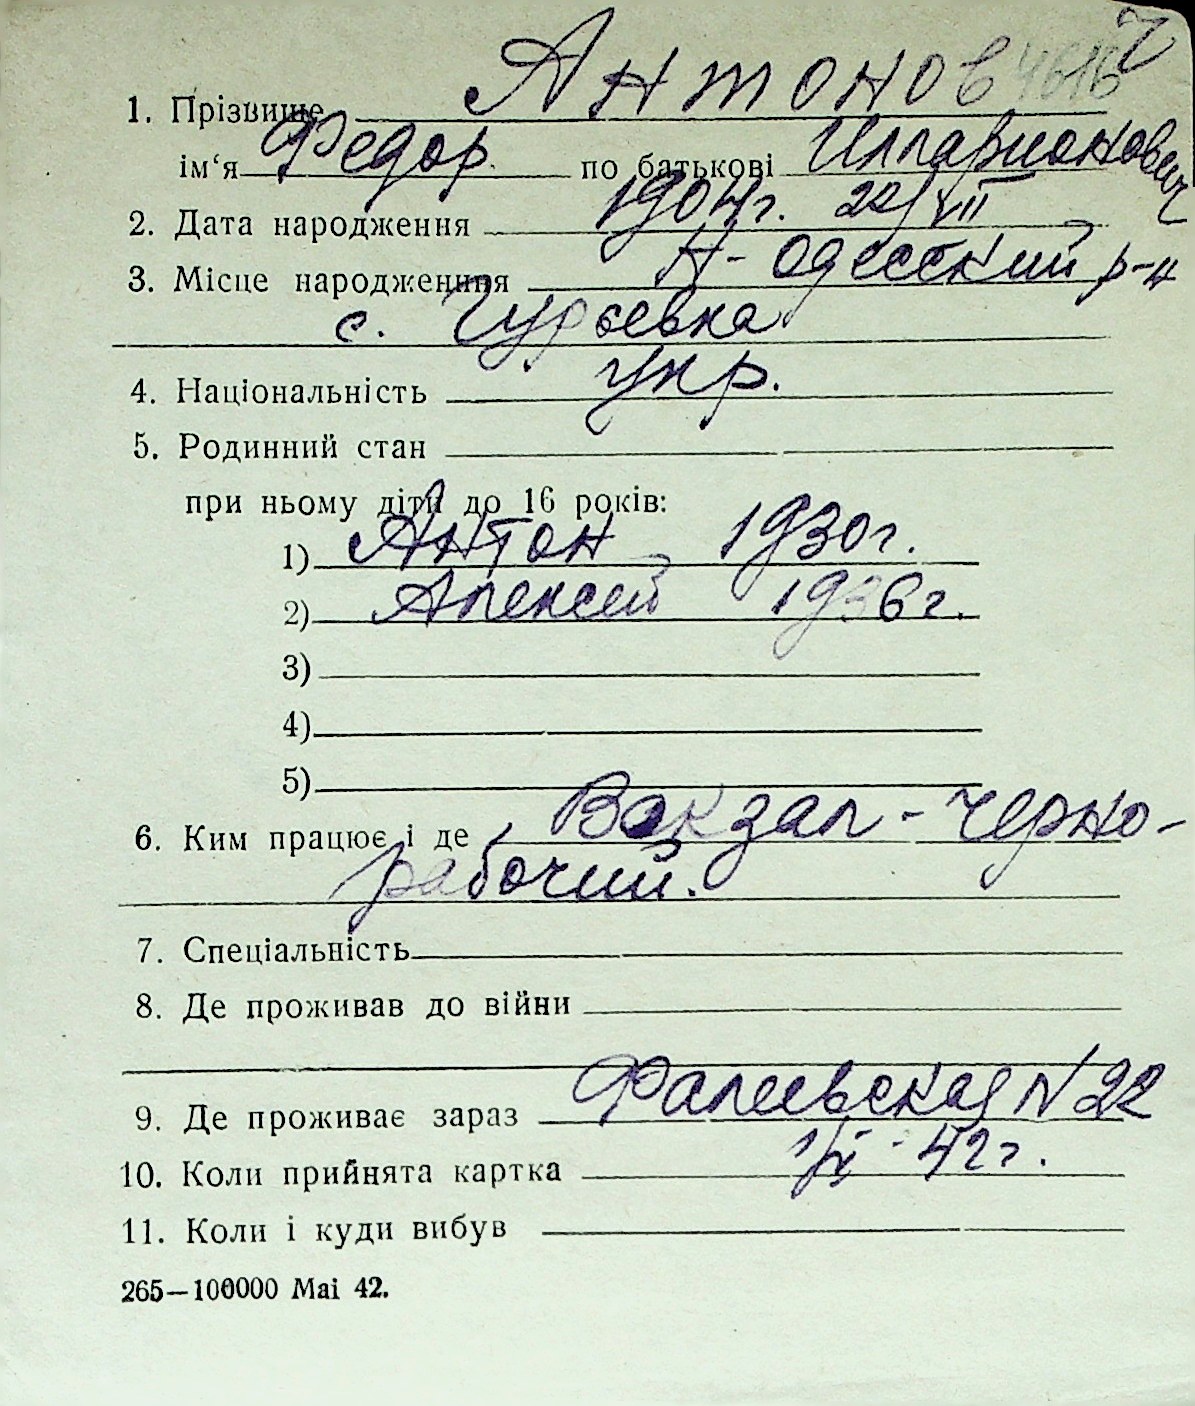 1. Прізвище Антонов
ім‘я Федор по батькові Илларионович
2. Дата народження 1904г. 22/VII
3. Місце народження Н-Одесский р-н
с. Гурьевка
4. Національність укр.
5. Родинний стан
при ньому діти до 16 років:
1) Антон 1930г.
2) Алексей 1936г.
3)
4)
5)
6. Ким працює і де Вокзал - черно-
рабочий.
7. Спеціальність
8. Де проживав до війни
9. Де проживає зараз Фалеевская N 22
10. Коли прийнята картка 1/IX - 42г.
11. Коли і куди вибув
265—100000 Mai 42.